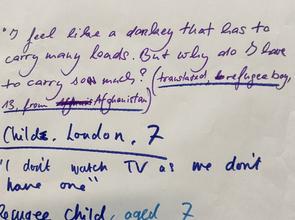 "I feel like a donkey that has to
carry many loads. But why do I have
to carry so much? (translated, refugee boy,
13, from Afghanistan)
Child. London, 7
"I don't watch TV as we don't
have one"
Refugee child, aged 7